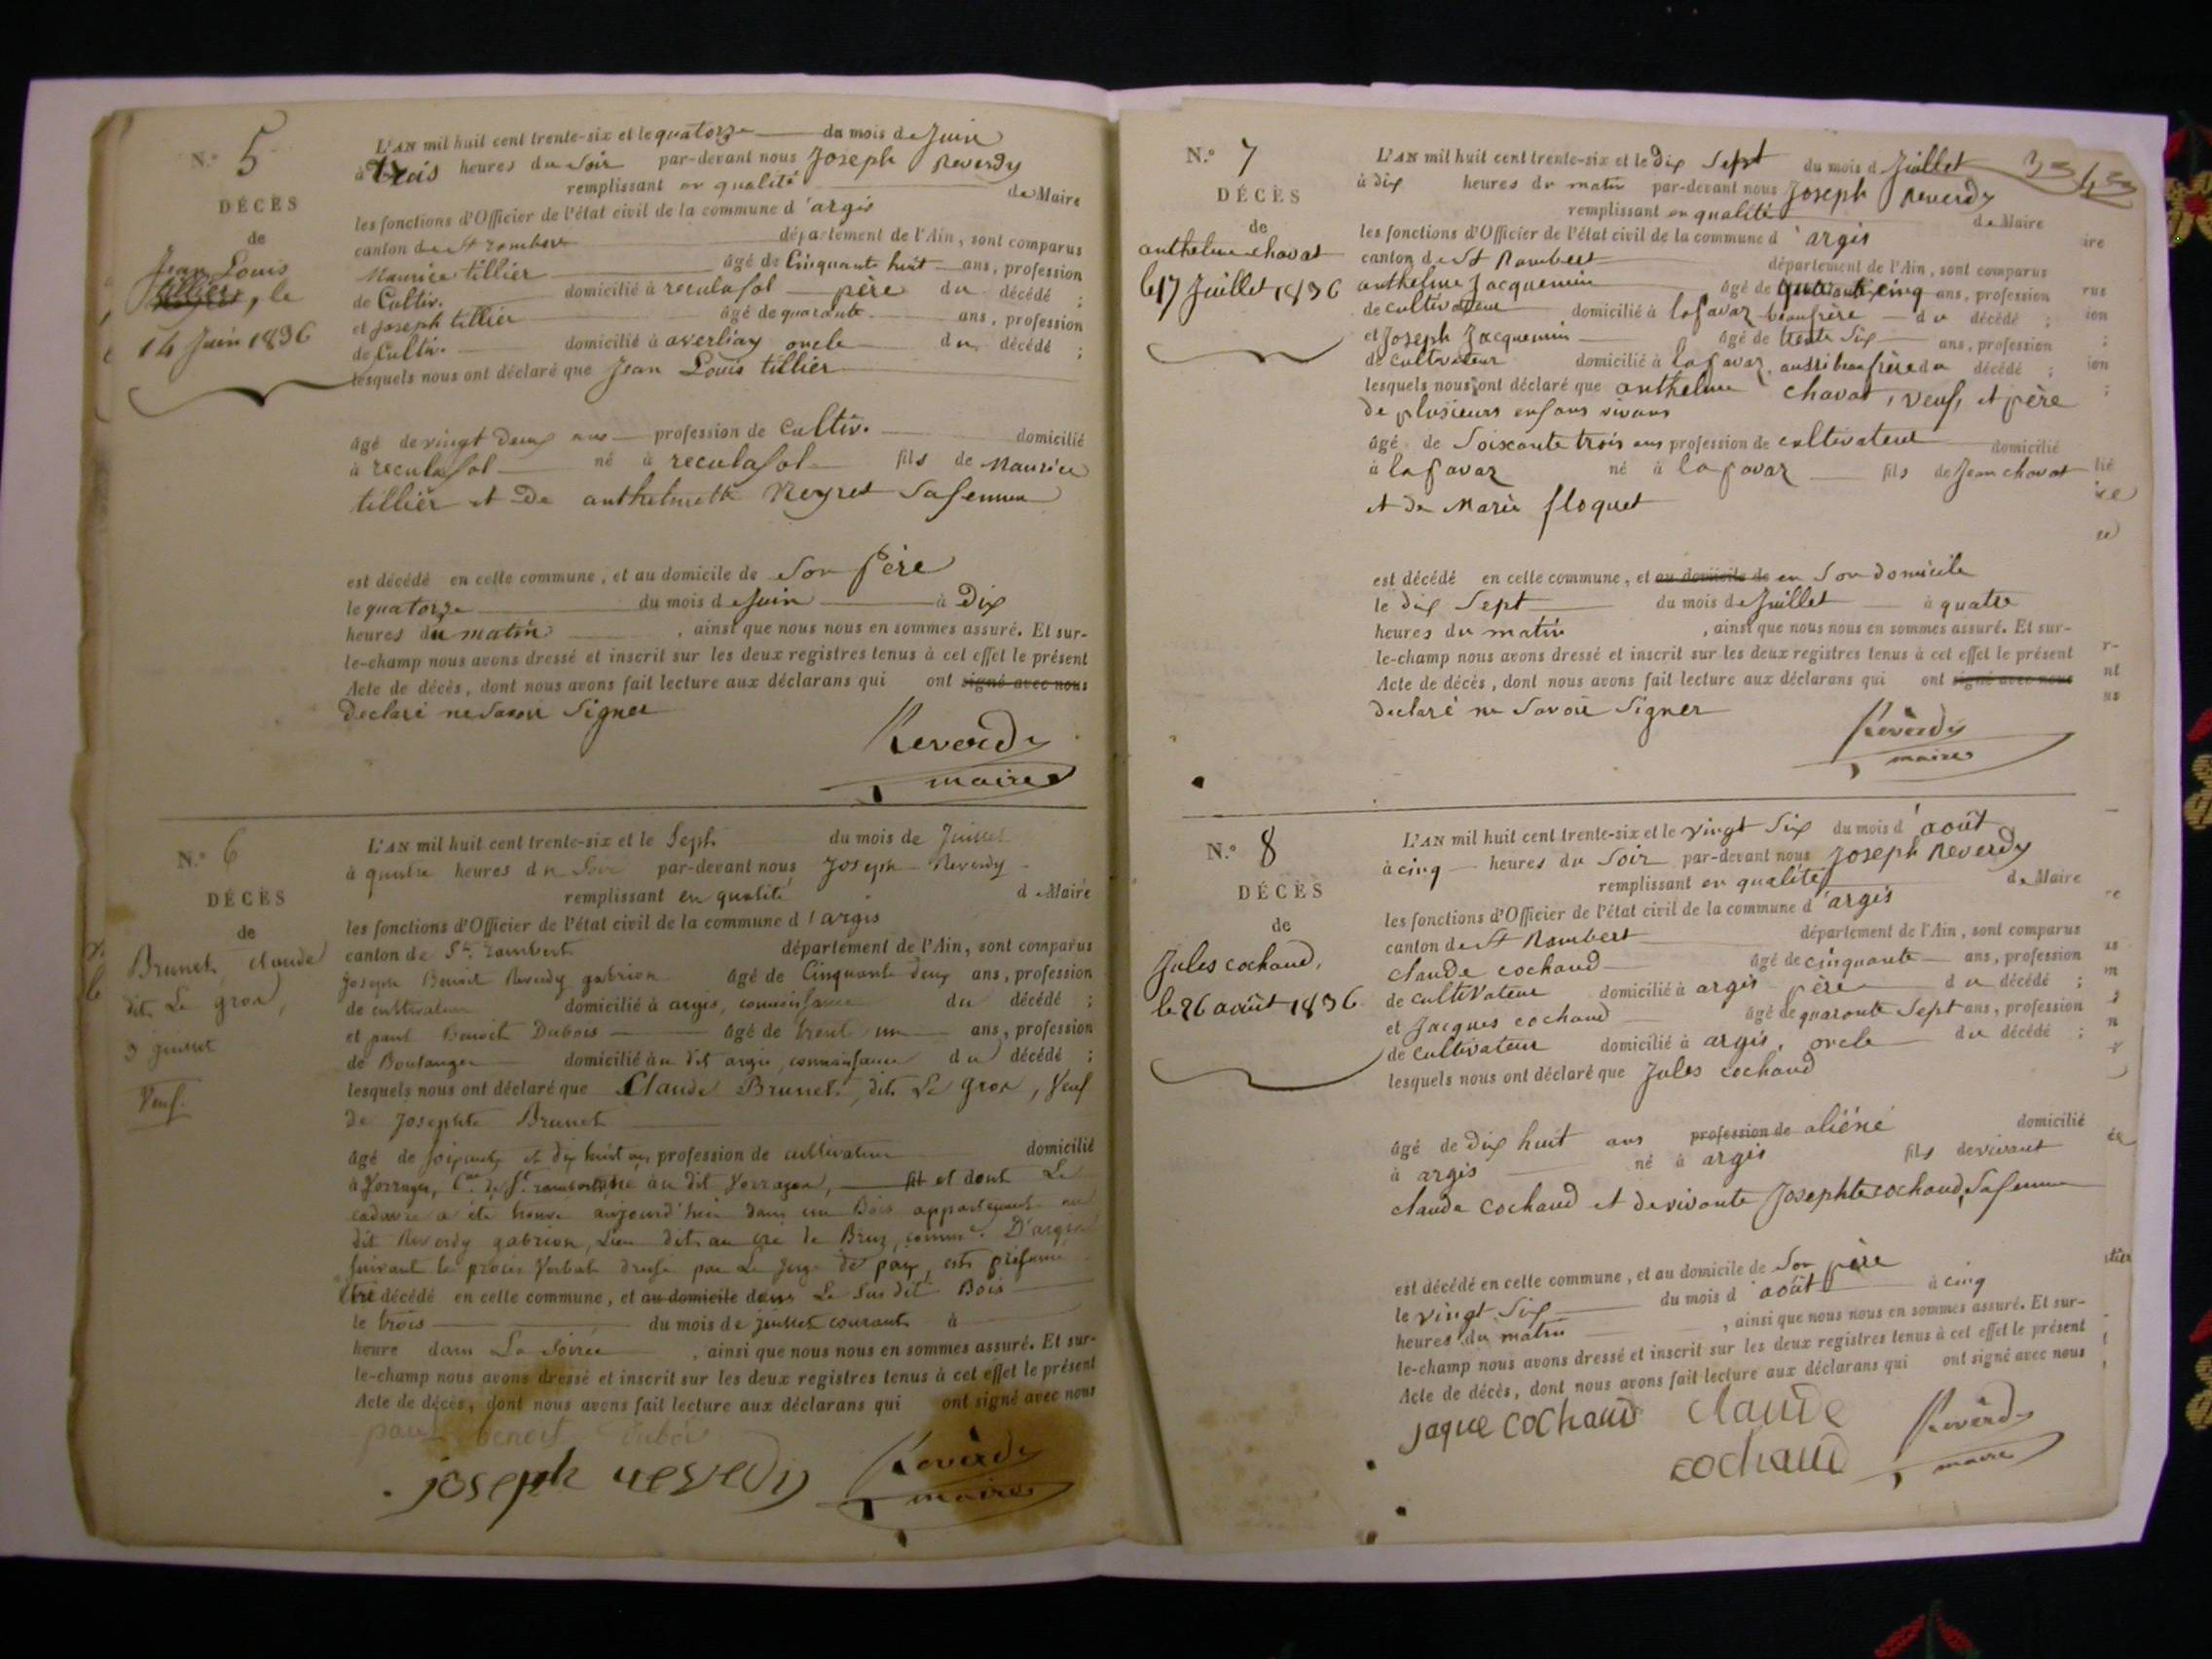 N.º 5
DÉCÈS
de
Jean Louis
tillier, le
14 Juin 1836
L'AN mil huit cent trente-six et le quatorze du mois de Juin
à trois heures du Soir par-devant nous Joseph Reverdy
remplissant en qualité de Maire
les fonctions d'Officier de l'état civil de la commune d'argis
canton de St rambert département de l'Ain, sont comparus
Maurice tillier âgé de Cinquante huit ans, profession
de Cultiv. domicilié à reculafol père du décédé ;
et joseph tillier âgé de quarante ans, profession
de Cultiv. domicilié à averliaz oncle du décédé ;
lesquels nous ont déclaré que Jean Louis tillier
âgé de vingt deux ans profession de Cultiv. domicilié
à reculafol né à reculafol fils de Maurice
tillier et de anthelmette Neyret Safemme
est décédé en cette commune, et au domicile de Son Père
le quatorze du mois de Juin à Dix
heures du matin , ainsi que nous nous en sommes assuré. Et sur-
le-champ nous avons dressé et inscrit sur les deux registres tenus à cet effet le présent
Acte de décès, dont nous avons fait lecture aux déclarans qui ont signé avec nous
declaré ne Savoir Signer
Reverdy
maire
N.º 6
DÉCÈS
de
Brunet, claude
dit Le gros,
3 juillet
Veuf.
L'AN mil huit cent trente-six et le Sept du mois de Juillet
à quatre heures du Soir par-devant nous Joseph Reverdy
remplissant en qualité de Maire
les fonctions d'Officier de l'état civil de la commune d'argis
canton de St. rambert département de l'Ain, sont comparus
Joseph Benoit Reverdy gabrion âgé de Cinquante deux ans, profession
de cultivateur domicilié à argis, connoissance du décédé ;
et paul Benoit Dubois âgé de trente un ans, profession
de Boulanger domicilié au dit argis, connaissance du décédé ;
lesquels nous ont déclaré que Claude Brunet, dit Le gros, Veuf
de Josephte Brunet
âgé de soixante et dix huit ans profession de cultivateur domicilié
à né au dit fils et dont Le
cadavre a été trouvé aujourd'hui dans un Bois appartenant au
dit Reverdy gabrion, Lieu dit au cré de Bruz, comme. D'argis
suivant le procès Verbal dressé par Le Juge de paix, est présumé
être décédé en cette commune, et au domicile dans Le Sus dit Bois
le trois du mois de juillet courant à
heure dans La Soirée , ainsi que nous nous en sommes assuré. Et sur-
le-champ nous avons dressé et inscrit sur les deux registres tenus à cet effet le présent
Acte de décès, dont nous avons fait lecture aux déclarans qui ont signé avec nous
paul benoit Dubois
joseph reverdy Reverdy
maire
N.º 7
DÉCÈS
de
anthelme chavat
le 17 Juillet 1836
L'AN mil huit cent trente-six et le dix Sept du mois d Juillet
à dix heures du matin par-devant nous Joseph Reverdy
remplissant en qualité de Maire
les fonctions d'Officier de l'état civil de la commune d'argis
canton de St Rambert département de l'Ain, sont comparus
anthelme Jacquemin âgé de cinq ans, profession
de cultivateur domicilié à lafavaz beaufrère du décédé ;
et Joseph Jacquemin âgé de trente Six ans, profession
de cultivateur domicilié à lafavaz, aussi beaufrère du décédé ;
lesquels nous ont déclaré que anthelme chavat, veuf, et père
de plusieurs enfans vivans
âgé de Soixante trois ans profession de cultivateur domicilié
à lafavaz né à lafavaz fils de Jean chavat
et de Marie floquet
est décédé en cette commune, et au domicile de en Son domicile
le dix Sept du mois de Juillet à quatre
heures du matin , ainsi que nous nous en sommes assuré. Et sur-
le-champ nous avons dressé et inscrit sur les deux registres tenus à cet effet le présent
Acte de décès, dont nous avons fait lecture aux déclarans qui ont signé avec nous
declaré ne Savoir Signer
Reverdy
maire
N.º 8
DÉCÈS
de
Jules cochaud,
le 26 août 1836
L'AN mil huit cent trente-six et le vingt Six du mois d'août
à cinq heures du Soir par-devant nous Joseph Reverdy
remplissant en qualité de Maire
les fonctions d'Officier de l'état civil de la commune d'argis
canton de St Rambert département de l'Ain, sont comparus
claude cochaud âgé de cinquante ans, profession
de cultivateur domicilié à argis père du décédé ;
et Jacques cochaud âgé de quarante Sept ans, profession
de cultivateur domicilié à argis, oncle du décédé ;
lesquels nous ont déclaré que Jules cochaud
âgé de dix huit ans profession de aliéné domicilié
à argis né à argis fils de vivant
claude cochaud et de vivante Josephte cochaud, Safemme
est décédé en cette commune, et au domicile de Son père
le vingt Six du mois d'août à cinq
heures du matin , ainsi que nous nous en sommes assuré. Et sur-
le-champ nous avons dressé et inscrit sur les deux registres tenus à cet effet le présent
Acte de décès, dont nous avons fait lecture aux déclarans qui ont signé avec nous
jaque cochaud claude Reverdy
cochaud maire